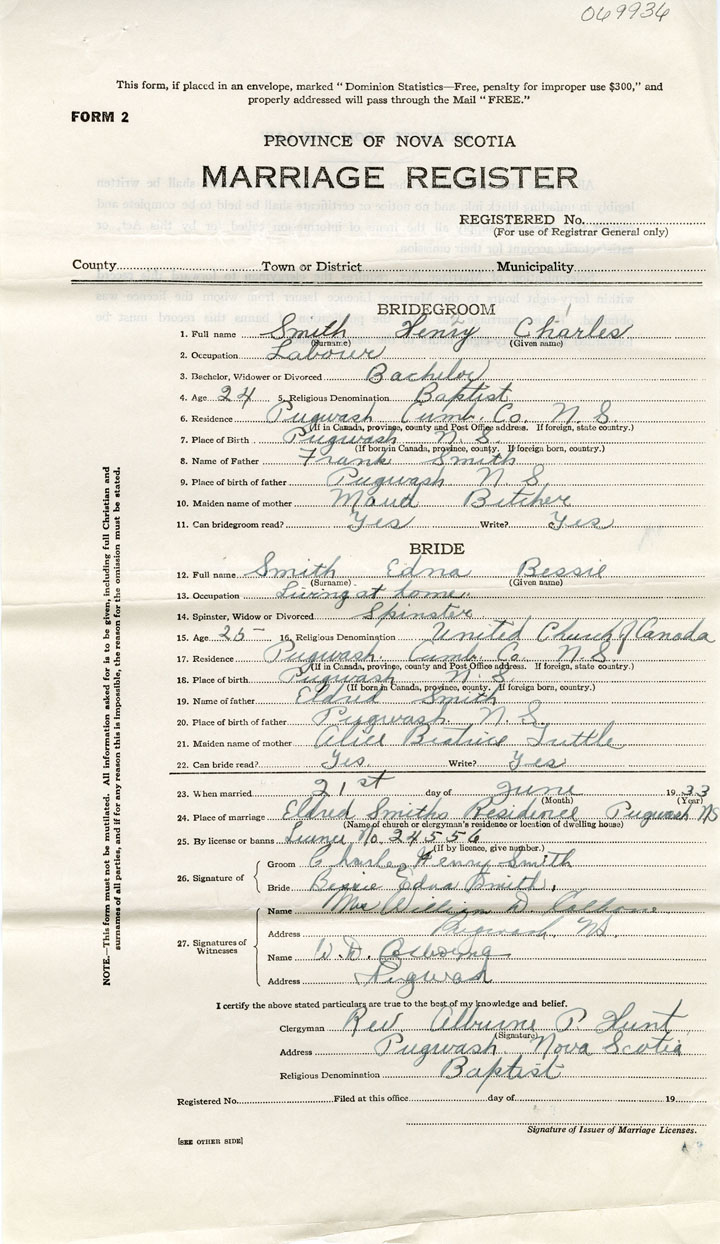 069936
This form, if placed in an envelope, marked "Dominion Statistics—Free, penalty for improper use $300," and
properly addressed will pass through the Mail "FREE."
FORM 2
PROVINCE OF NOVA SCOTIA
MARRIAGE REGISTER
REGISTERED No.
(For use of Registrar General only)
County Town or District Municipality
BRIDEGROOM
1. Full name Smith Henry Charles
(Surname) (Given name)
2. Occupation Labourer
3. Bachelor, Widower or Divorced Bachelor
4. Age 24 5. Religious Denomination Baptist
6. Residence Pugwash Cumb. Co. N. S.
(If in Canada, province, county and Post Office address. If foreign, state country.)
7. Place of Birth Pugwash N. S.
(If born in Canada, province, county. If foreign born, country.)
8. Name of Father Frank Smith
9. Place of birth of father Pugwash N. S.
10. Maiden name of mother Maud
11. Can bridegroom read? Yes Write? Yes
BRIDE
12. Full name Smith Edna Bessie
(Surname) (Given name)
13. Occupation Living at home.
14. Spinster, Widow or Divorced Spinster
15. Age 25 16. Religious Denomination United Church of Canada
17. Residence Pugwash. Cumb. Co. N. S.
(If in Canada, province, county and Post Office address. If foreign, state country.)
18. Place of birth Pugwash N. S.
(If born in Canada, province, county. If foreign born, country.)
19. Name of father Eldred Smith
20. Place of birth of father Pugwash N. S.
21. Maiden name of mother Alice Beatrice Tuttle
22. Can bride read? Yes. Write? Yes
23. When married 21st day of June 19 33
(Month) (Year)
24. Place of marriage Eldred Smiths Residence Pugwash NS
(Name of church or clergyman's residence or location of dwelling house)
25. By license or banns No. 24556
(If by licence, give number.)
26. Signature of
Groom Charles Henry Smith
Bride Bessie Edna Smith.
27. Signatures of Witnesses
Name Mrs William D.
Address Pugwash NS.
Name W. D.
Address Pugwash
I certify the above stated particulars are true to the best of my knowledge and belief.
Clergyman Rev. P. Hunt
(Signature)
Address Pugwash. Nova Scotia
Religious Denomination Baptist
Registered No. Filed at this office day of 19
Signature of Issuer of Marriage Licenses.
[SEE OTHER SIDE]
NOTE.—This form must not be mutilated. All information asked for is to be given, including full Christian and
surnames of all parties, and if for any reason this is impossible, the reason for the omission must be stated.